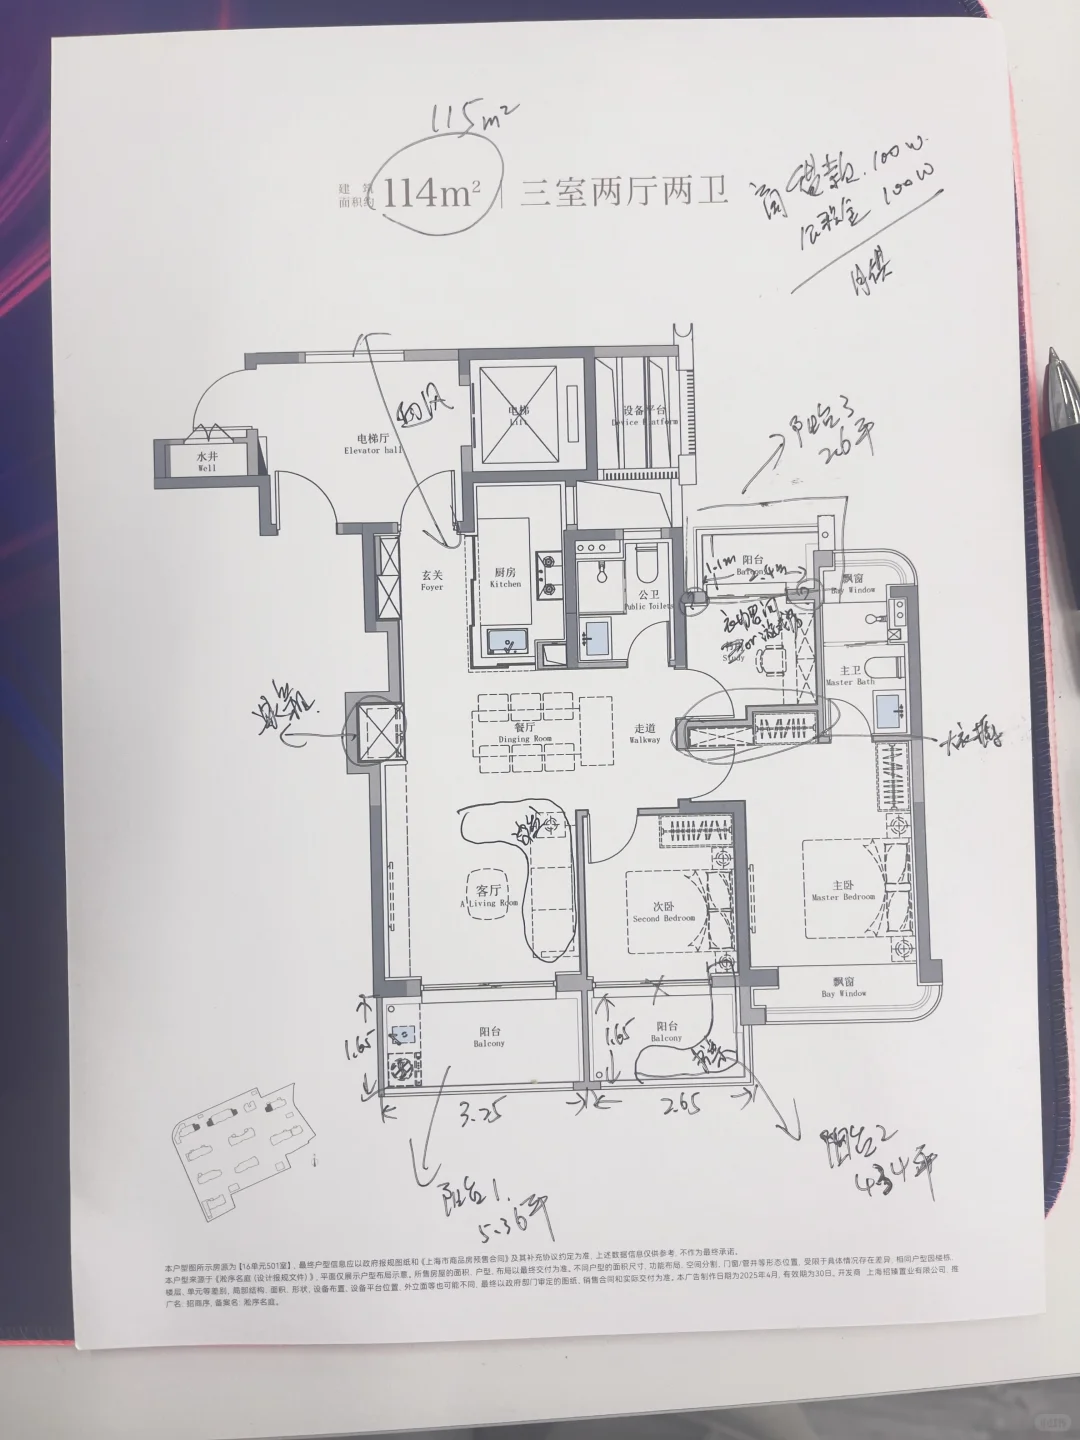 115m²
建筑
面积约 114m² 三室两厅两卫
商贷款.100w.
公积金 100w
月供
回风
电梯
Lift
设备平台
Device Platform
电梯厅
Elevator hall
水井
Well
阳台3
2.6平
玄关
Foyer
厨房
Kitchen
公卫
Public Toilets
阳台
Balcony
1.1m
2.4m
飘窗
Bay Window
衣物盥洗
or 游戏房
Study
主卫
Master Bath
冰箱
餐厅
Dinging Room
走道
Walkway
大衣橱
客厅
A Living Room
次卧
Second Bedroom
主卧
Master Bedroom
飘窗
Bay Window
阳台
Balcony
阳台
Balcony
1.65
1.65
3.25
2.65
阳台1.
5.36平
阳台2
4.34平
本户型图所示房源为【16单元501室】，最终户型信息应以政府报规图纸和《上海市商品房预售合同》及其补充协议约定为准，上述数据信息仅供参考，不作为最终承诺。
本户型来源于《淞序名庭（设计报规文件）》，平面仅展示户型布局示意。所售房屋的面积、户型、布局以最终交付为准。不同户型的面积尺寸、功能布局、空间分割、门窗/管井等形态位置，受限于具体情况存在差异，相同户型因楼栋、
楼层、单元等差别，局部结构、面积、形状、设备布置、设备平台位置、外立面等也可能不同，最终以政府部门审定的图纸、销售合同和实际交付为准。本广告制作日期为2025年4月，有效期为30日。开发商：上海招臻置业有限公司，推
广名：招商序，备案名：淞序名庭。